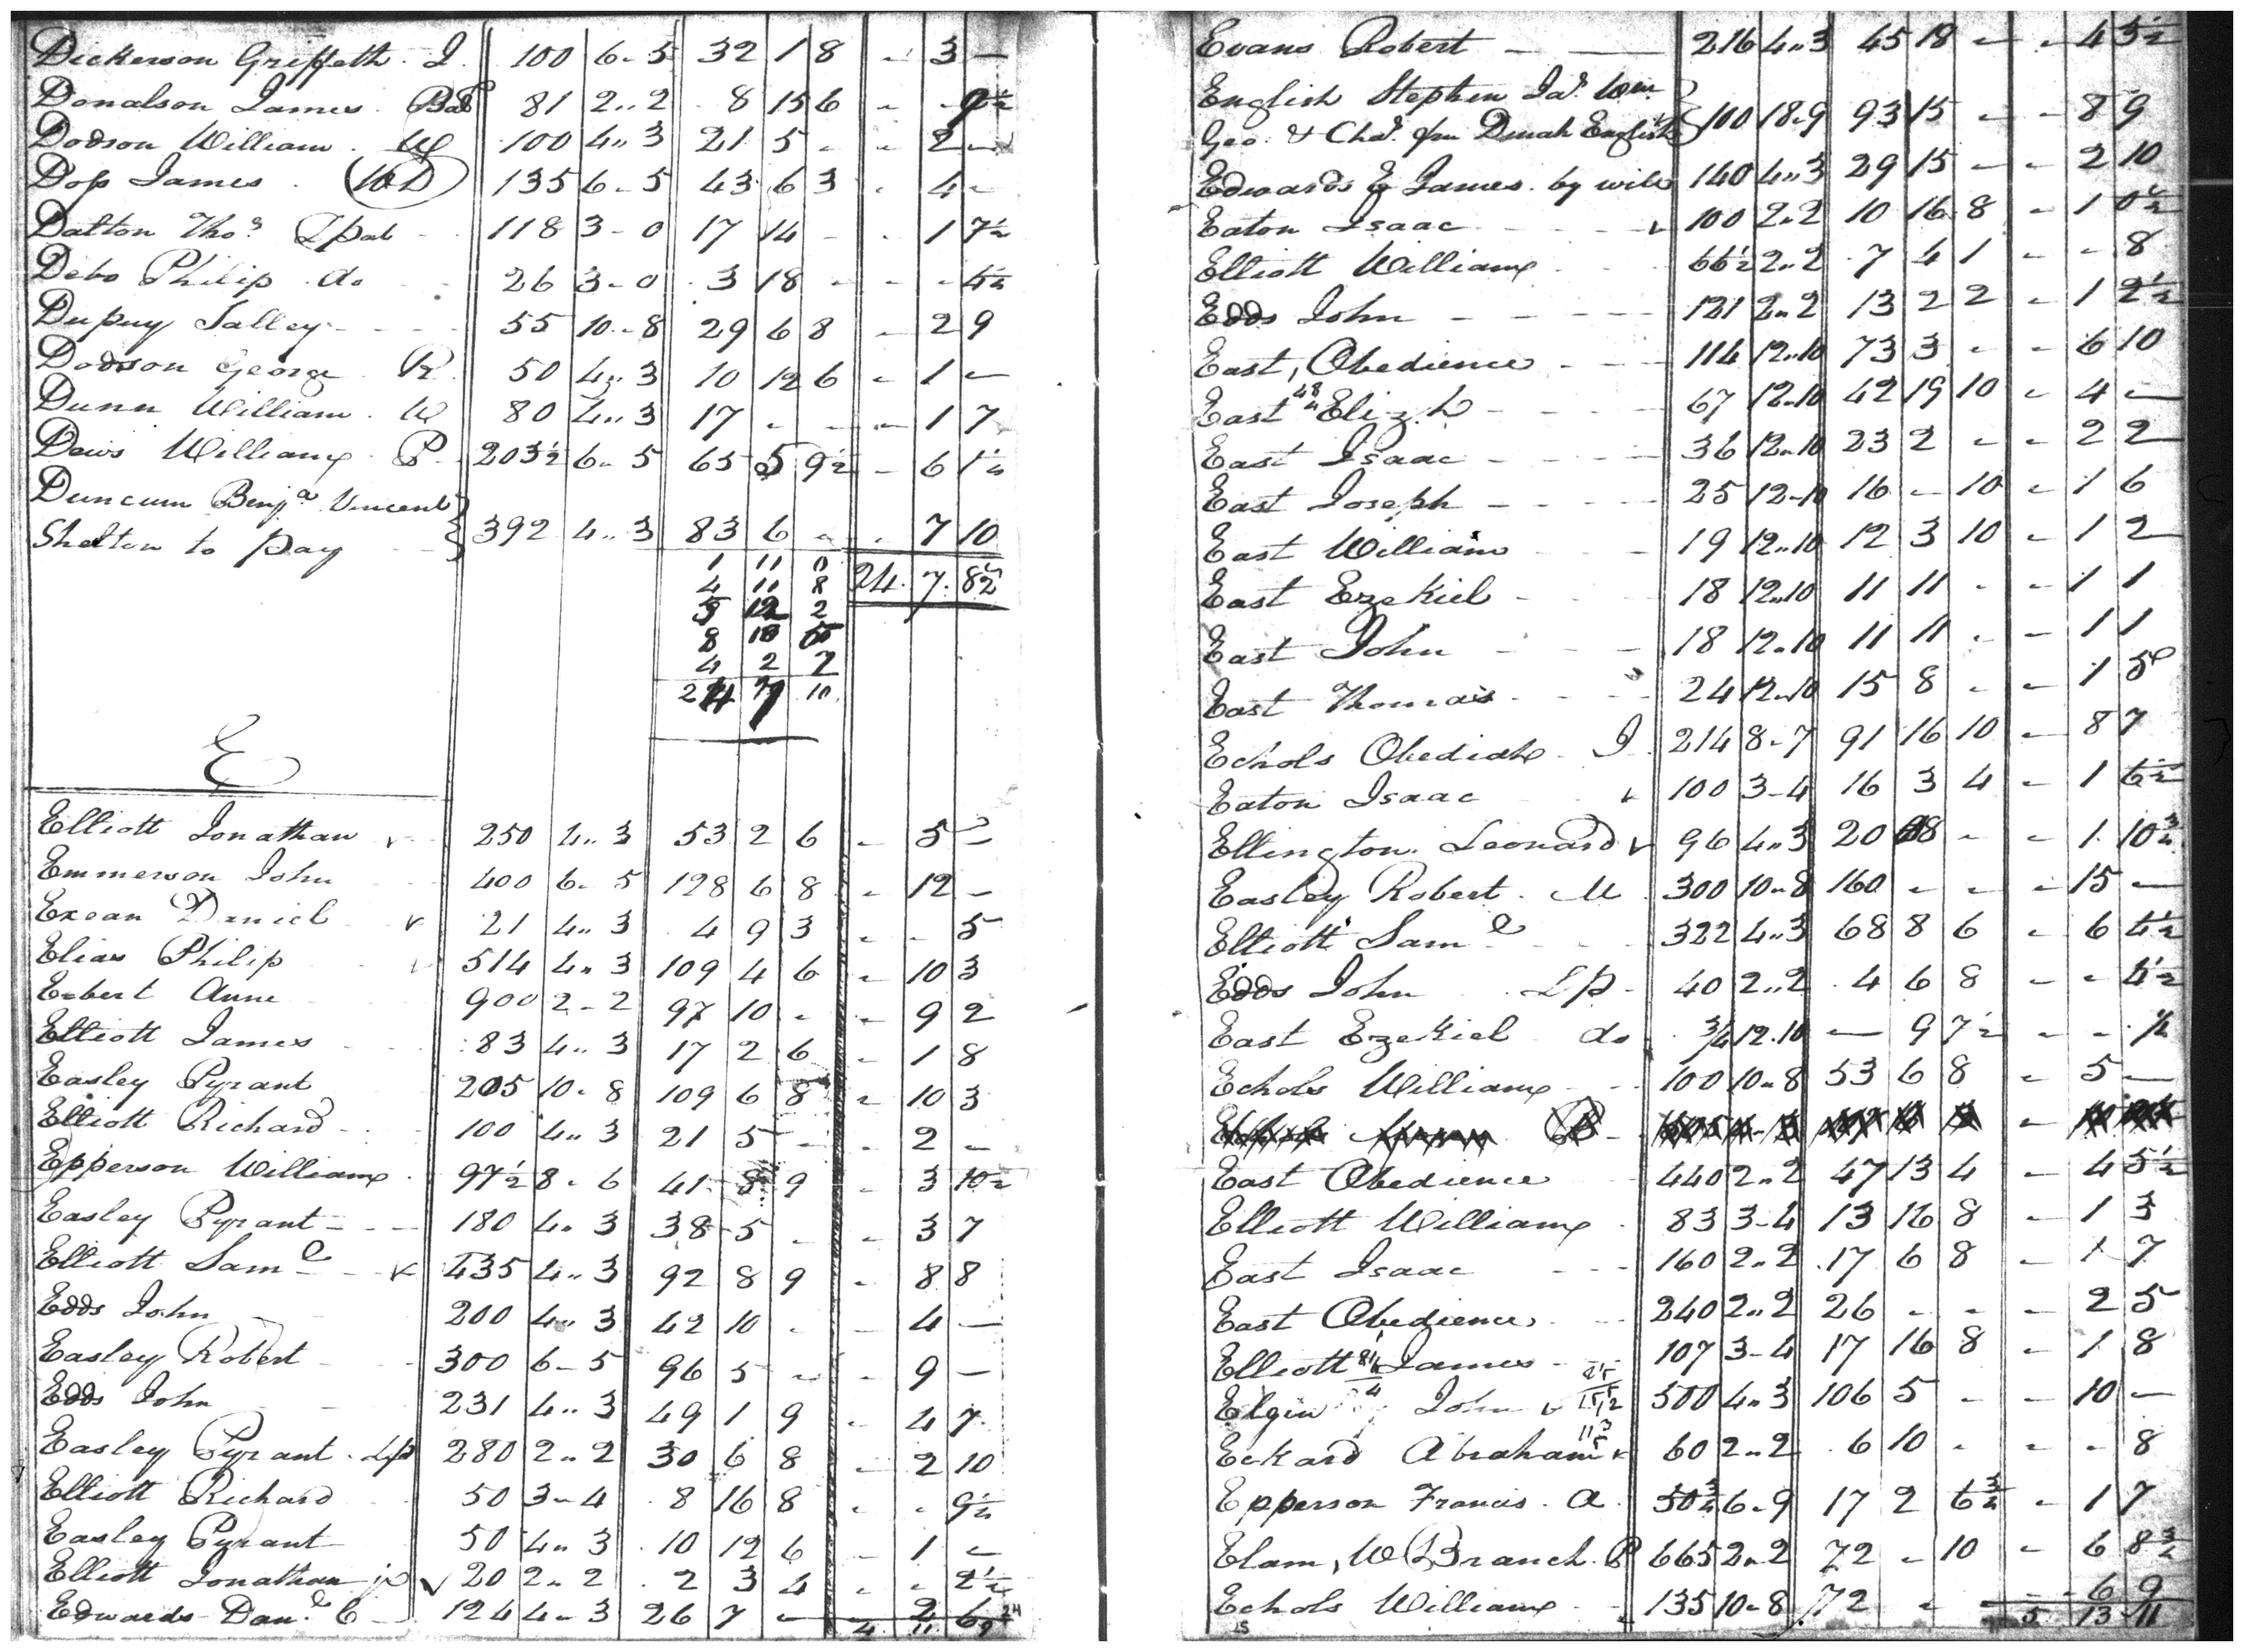 Dickerson Griffeth. I. 100 6 - 5 32 1 8 - 3 -
Donalson James. 81 2 .. 2 8 15 6 - - 9½
Dodson William. W 100 4 .. 3 21 5 - - 2 -
Doss James. WD 135 6 - 5 43 6 3 - 4 -
Dalton Thos. Lpat 118 3 - 0 17 14 - - 1 7½
Debo Philip do 26 3 - 0 3 18 - - - 4½
Dupuy Salley 55 10 - 8 29 6 8 - 2 9
Dodson George R. 50 4 .. 3 10 12 6 - 1 -
Dunn William. W 80 4 .. 3 17 - - - 1 7
Dews William P. 203½ 6 - 5 65 5 9½ - 6 1½
Duncum Benja Vincent
Shelton to pay 392 4 .. 3 83 6 - - 7 10
1 11 0 24. 7. 8½
4 11 8
5 12 2
8 10
4 2 7
24 7 10
E
Elliott Jonathan v 250 4 .. 3 53 2 6 - 5 -
Emmerson John 400 6 - 5 128 6 8 - 12 -
Exoan Daniel v 21 4 .. 3 4 9 3 - - 5
Elias Philip v 514 4 .. 3 109 4 6 - 10 3
Ecbert Anne 900 2 - 2 97 10 - - 9 2
Elliott James 83 4 .. 3 17 2 6 - 1 8
Easley Pyrant 205 10 - 8 109 6 8 - 10 3
Elliott Richard 100 4 .. 3 21 5 - - 2 -
Epperson William 97½ 8 - 6 41 8 9 - 3 10½
Easley Pyrant 180 4 .. 3 38 5 - - 3 7
Elliott Saml v 435 4 .. 3 92 8 9 - 8 8
Edds John 200 4 .. 3 42 10 - - 4 -
Easley Robert 300 6 - 5 96 5 - - 9 -
Edds John 231 4 .. 3 49 1 9 - 4 7
Easley Pyrant. Lp 280 2 .. 2 30 6 8 - 2 10
Elliott Richard 50 3 - 4 8 16 8 - - 9½
Easley Pyrant 50 4 .. 3 10 12 6 - 1 -
Elliott Jonathan v 20 2 .. 2 2 3 4 - - 2½
Edwards Danl. C 124 4 .. 3 26 7 - - 2 6
4 11
Evans Robert 216 4 .. 3 45 18 - - 4 3½
English Stephen Jas. Wm
Geo. & Chas. fm Dinah English 100 18 - 9 93 15 - - 8 9
Edwards James. by will 140 4 .. 3 29 15 - - 2 10
Eaton Isaac v 100 2 .. 2 10 16 8 - 1 0½
Elliott William 66½ 2 .. 2 7 4 1 - - 8
Edds John 121 2 .. 2 13 2 2 - 1 2½
East, Obedience 114 12 .. 10 73 3 - - 6 10
East Elizh 67 12 .. 10 42 19 10 - 4 -
East Isaac 36 12 .. 10 23 2 - - 2 2
East Joseph 25 12 - 10 16 - 10 - 1 6
East William 19 12 .. 10 12 3 10 - 1 2
East Ezekiel 18 12 .. 10 11 11 - - 1 1
East John 18 12 .. 10 11 11 - - 1 1
East Thomas 24 12 .. 10 15 8 - - 1 5
Echols Obediah I. 214 8 - 7 91 16 10 - 8 7
Eaton Isaac v 100 3 - 4 16 3 4 - 1 6½
Ellington Leonard v 96 4 .. 3 20 8 - - 1. 10¾
Easley Robert. M 300 10 - 8 160 - - - 15 -
Elliott Saml 322 4 .. 3 68 8 6 - 6 4½
Edds John Lp 40 2 .. 2 4 6 8 - - 4½
East Ezekiel do ¾ 12. 10 - 9 7½ - - ½
Echols William 100 10 - 8 53 6 8 - 5 -
East Obedience 440 2 .. 2 47 13 4 - 4 5½
Elliott William 83 3 - 4 13 16 8 - 1 3
East Isaac 160 2 .. 2 17 6 8 - 1 7
East Obedience 240 2 .. 2 26 - - - 2 5
Elliott James 107 3 - 4 17 16 8 - 1 8
Elgin John v 500 4 .. 3 106 5 - - 10 -
Eckard Abraham v 60 2 .. 2 6 10 - - - 8
Epperson Francis. A. 50¾ 6 - 9 17 2 6¾ - 1 7
Elam, W Branch. P 665 2 .. 2 72 - 10 - 6 8¾
Echols William 135 10 - 8 72 - - - 6 9
5 13 11